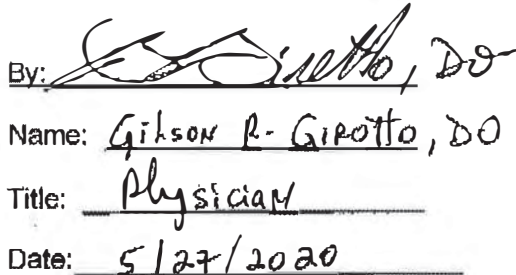 By: Girotto, DO
Name: Gilson R. Girotto, DO
Title: Physician
Date: 5/27/2020